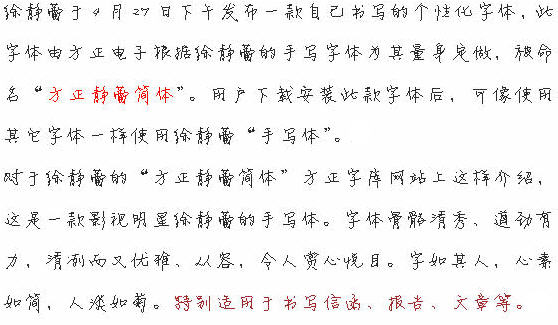 徐静蕾于4月27日下午发布一款自己书写的个性化字体，此
字体由方正电子根据徐静蕾的手写字体为其量身定做，被命
名“方正静蕾简体”。用户下载安装此款字体后，可像使用
其它字体一样使用徐静蕾“手写体”。
对于徐静蕾的“方正静蕾简体”方正字库网站上这样介绍，
这是一款影视明星徐静蕾的手写体。字体骨骼清秀、遒劲有
力，清冽而又优雅、从容，令人赏心悦目。字如其人，心素
如简，人淡如菊。特别适用于书写信函、报告、文章等。